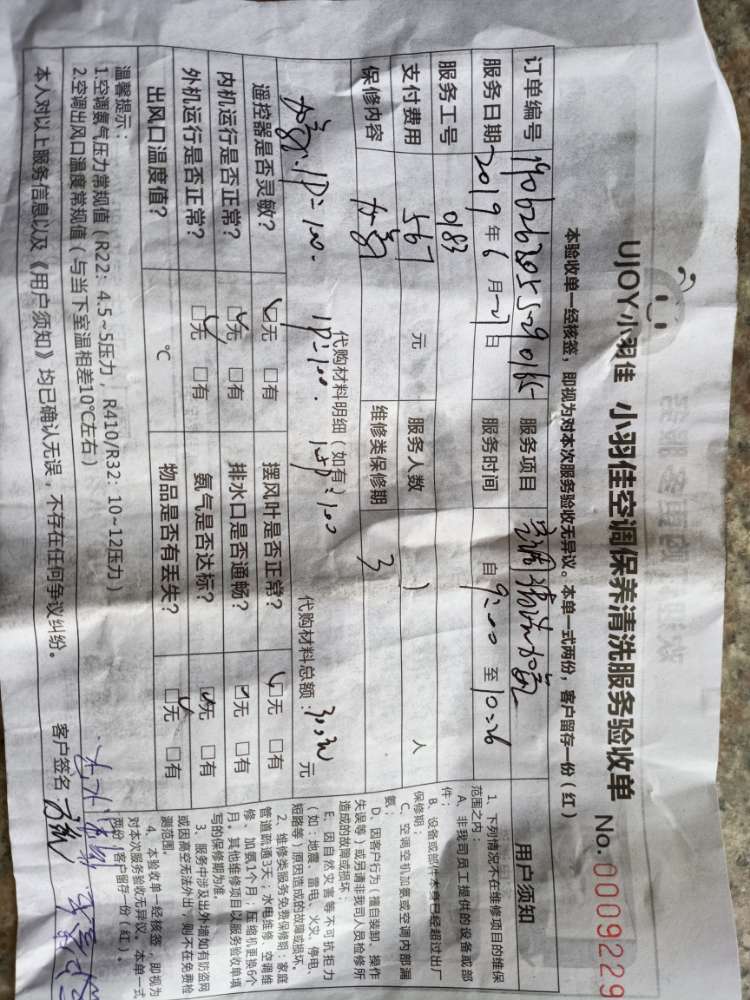 UJOY小羽佳 小羽佳空调保养清洗服务验收单 No. 0009229
本验收单一经核签，即视为对本次服务验收无异议。本单一式两份，客户留存一份（红）
订单编号 服务项目 空调清洗加氨
服务日期 2019 年 6 月 27 日 服务时间 自 9:00 至 10:26
服务工号 0183
支付费用 567 元 服务人数 1 人
保修内容 加氨 维修类保修期 3
代购材料明细（如有） 代购材料总额：300元 元
加氨：1P=100. 1P=100. 1.5P=100
遥控器是否灵敏？ 无 有 摆风叶是否正常？ 无 有
内机运行是否正常？ 无 有 排水口是否通畅？ 无 有
外机运行是否正常？ 无 有 氨气是否达标？ 无 有
出风口温度值？ ℃ 物品是否有丢失？ 无 有
温馨提示：
1.空调氨气压力常规值（R22：4.5~5压力，R410/R32：10~12压力）
2.空调出风口温度常规值（与当下室温相差10℃左右）
本人对以上服务信息以及《用户须知》均已确认无误，不存在任何争议纠纷。 客户签名
用户须知
1、下列情况不在维修项目的维保
范围之内：
A、非我司员工提供的设备或部
件；
B、设备或部件本身已经超过出厂
保修期；
C、空调空机加氨或空调内部漏
氨；
D、因客户行为（擅自装卸、操作
失误等）或另请非我司人员检修所
造成的故障或损坏；
E、因自然灾害等不可抗拒力
（如：地震、雷电、火灾、停电、
短路等）原因造成的故障或损坏。
2、维修类服务免费保修期：家庭
管道疏通3天；水电维修、空调维
修、加氨1个月；压缩机更换6个
月。其他维修项目以服务验收单填
写的保修期为准。
3、服务中涉及出外墙如有防盗网
或因高空无法外出，则不在免费检
测范围。
4、本验收单一经核签，即视为
对本次服务验收无异议。本单一式
两份，客户留存一份（红）。